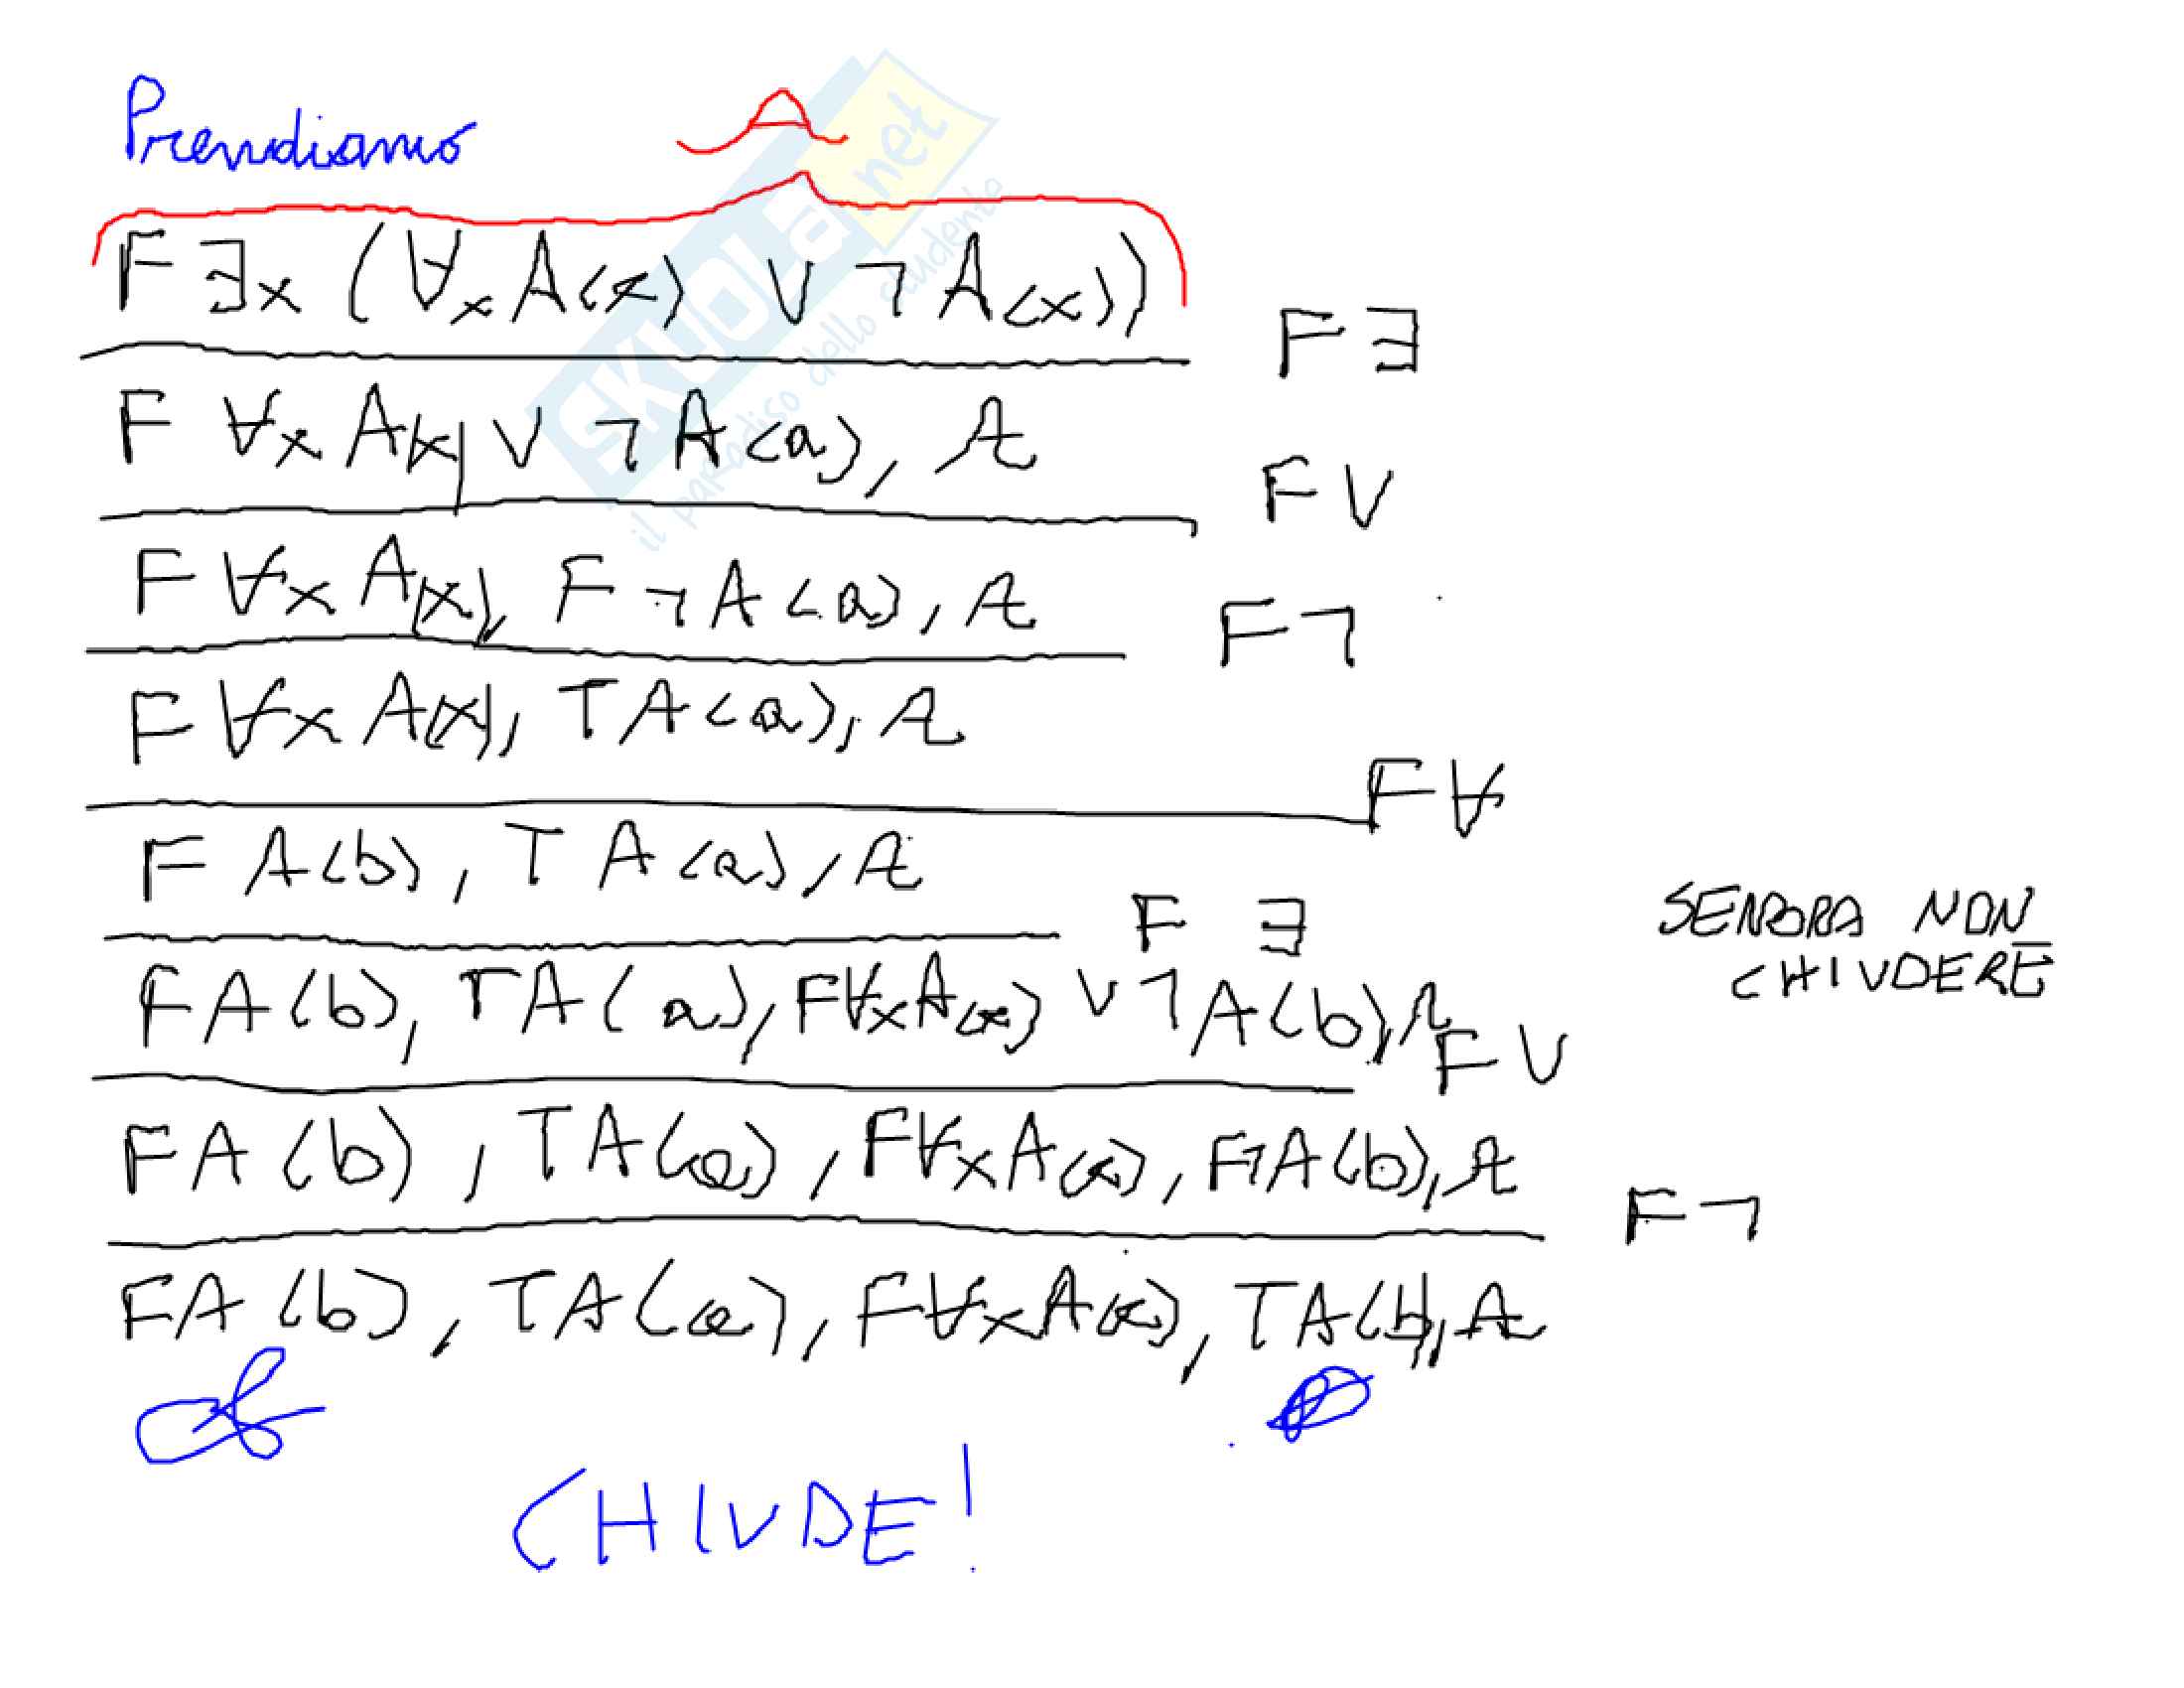 Prendiamo
A
F∃x (∀x A(x) ∨ ¬A(x))
F∃
F ∀x A(x) ∨ ¬A(a), A
F∨
F∀x A(x), F¬A(a), A
F¬
F∀x A(x), TA(a), A
F∀
F A(b), TA(a), A
F ∃
SEMBRA NON
CHIUDERE
FA(b), TA(a), F∀xA(x) ∨ ¬A(b), A
F∨
FA(b), TA(a), F∀xA(x), F¬A(b), A
F¬
FA(b), TA(a), F∀xA(x), TA(b), A
CHIUDE!
SKUOLA.net
il paradiso dello studente